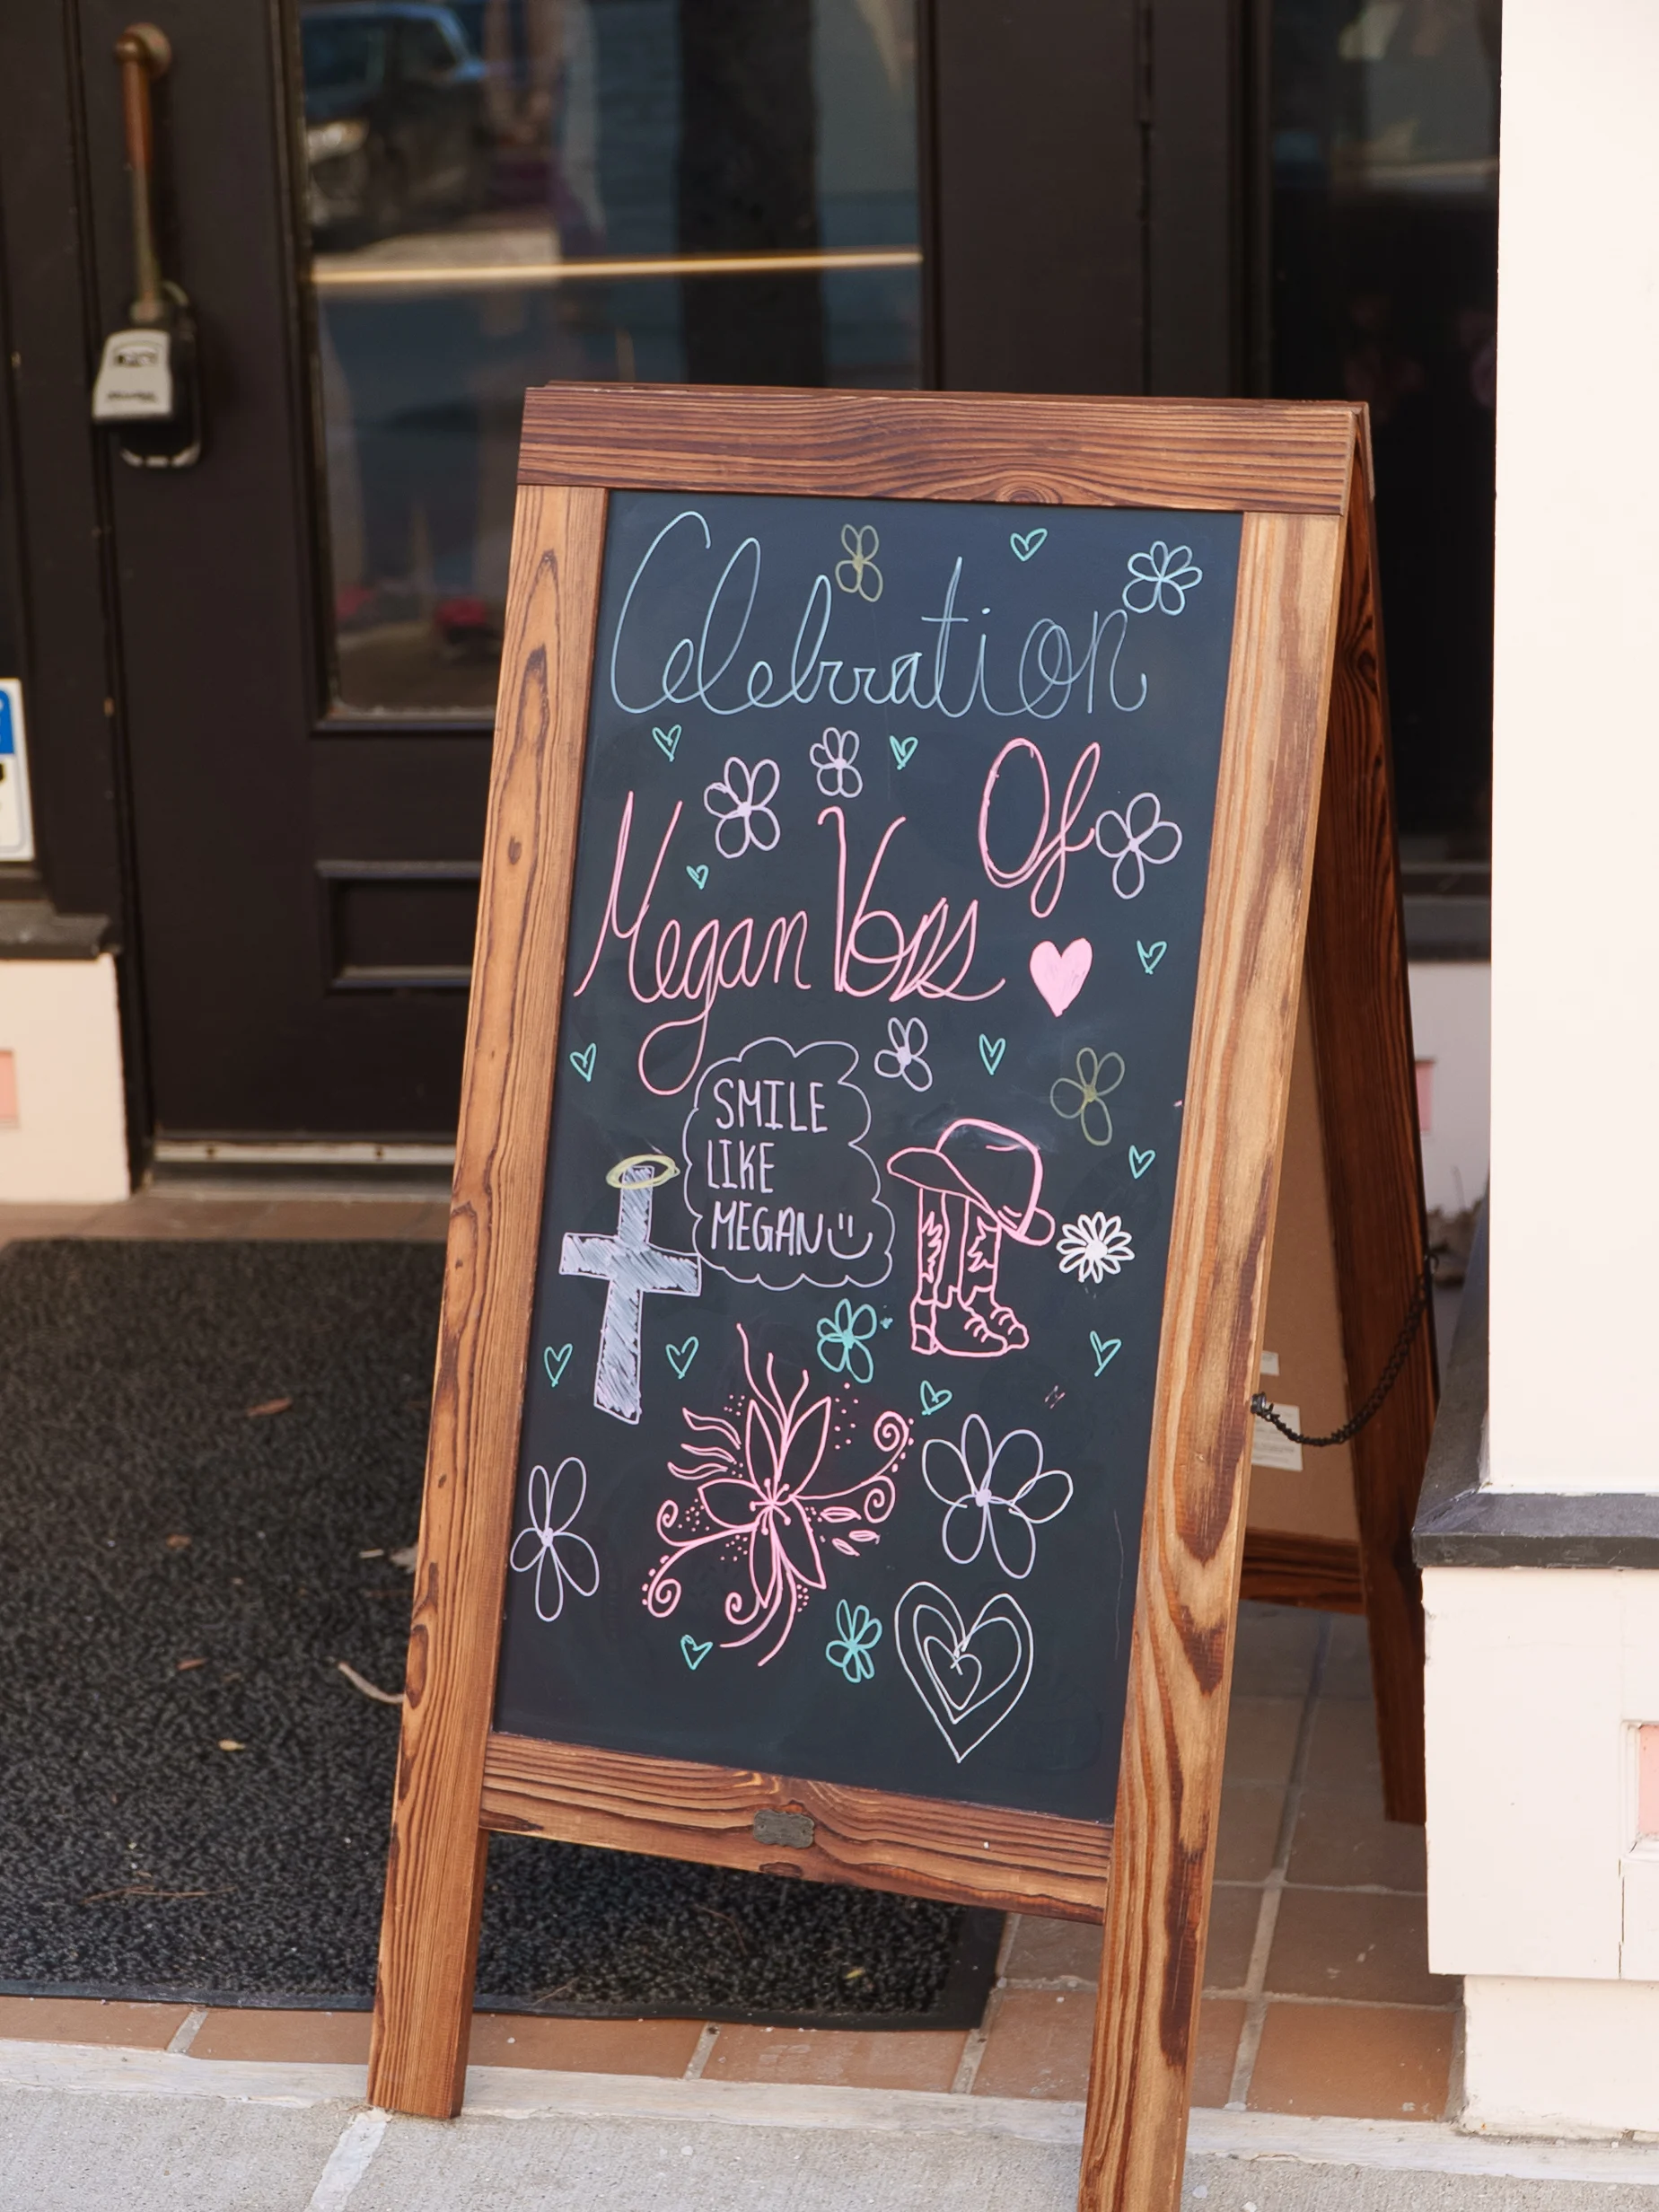 Celebration
Of
Megan Voss
SMILE
LIKE
MEGAN